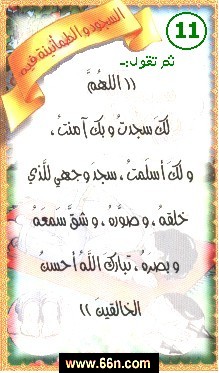 السجود و الطمأنينة فيه
11
ثم تقول:ـ
(( اللهُمَّ
لكَ سجدتُ و بكَ آمنتُ ،
و لكَ أسلمتُ ، سجدَ وجهي للَّذي
خلقهُ ، و صوَّرهُ ، و شقَّ سَمعَهُ
و بصرَهُ ، تباركَ اللَّهُ أحسنُ
الخالقينَ ))
www.66n.com